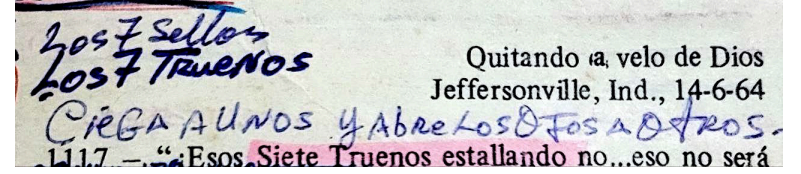 Los 7 Sellos
Los 7 TRUENOS
Quitando ‹a, velo de Dios
Jeffersonville, Ind., 14-6-64
CIEGA A UNOS Y AbRe LOS OJOS A OtROS.
1117 – “¡Esos Siete Truenos estallando no...eso no será